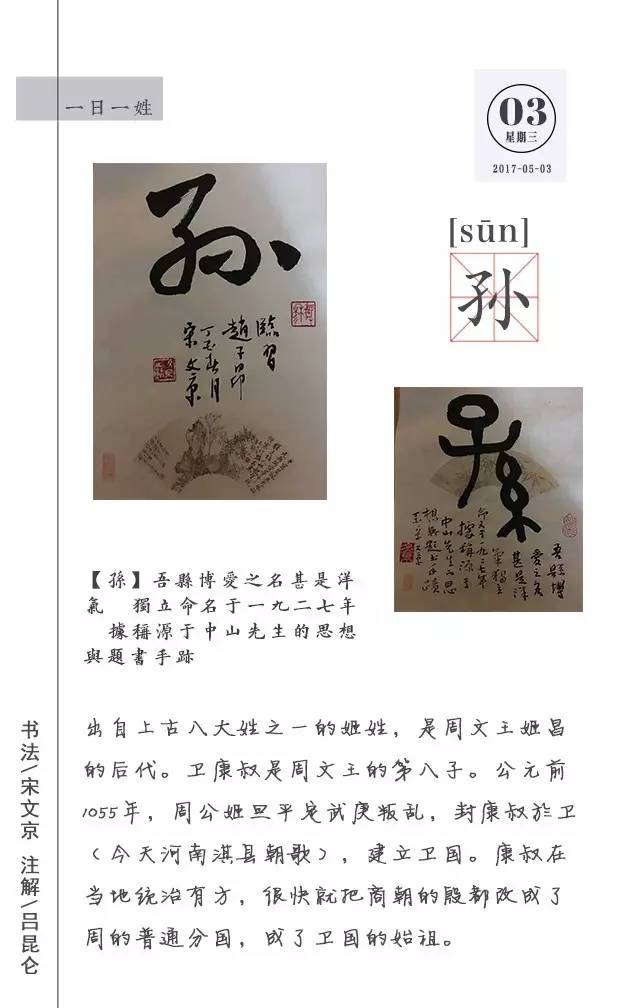 一日一姓
03
星期三
2017-05-03
[sūn]
孙
孙
臨習
趙子昂
丁酉春月
宋文京
孫
吾縣博
愛之名
甚是洋
氣獨立
命名于一九二七年
據稱源于
中山先生的思
想與題書手跡
【孫】吾縣博愛之名甚是洋
氣　獨立命名于一九二七年
據稱源于中山先生的思想
與題書手跡
出自上古八大姓之一的姬姓，是周文王姬昌
的后代。卫康叔是周文王的第八子。公元前
1055年，周公姬旦平定武庚叛乱，封康叔於卫
（今天河南淇县朝歌），建立卫国。康叔在
当地统治有方，很快就把商朝的殷都改成了
周的普通分国，成了卫国的始祖。
书法\宋文京 注解\吕昆仑